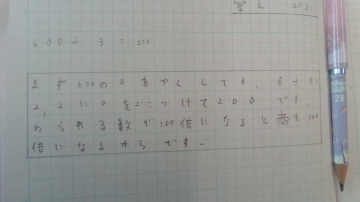 答え 20
600÷3=200
まず600の0をかくして6、6÷3=
2、2に0を2こつけて200です。
わられる数が100倍になると商も100
倍になるからです。